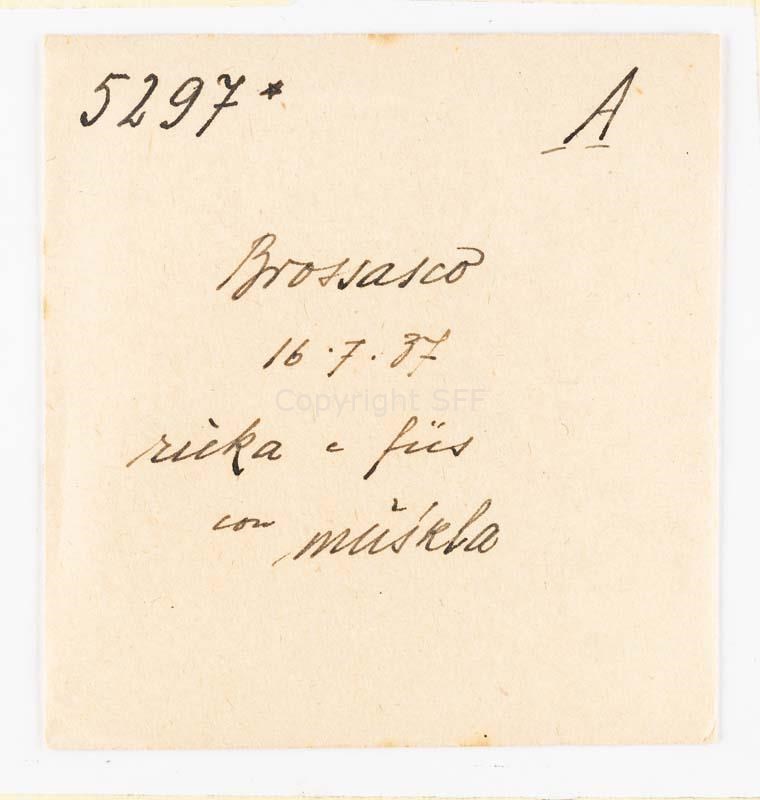 5297* A
Brossasco
16.7.37
Copyright SFF
ruka e füs
con müśkla